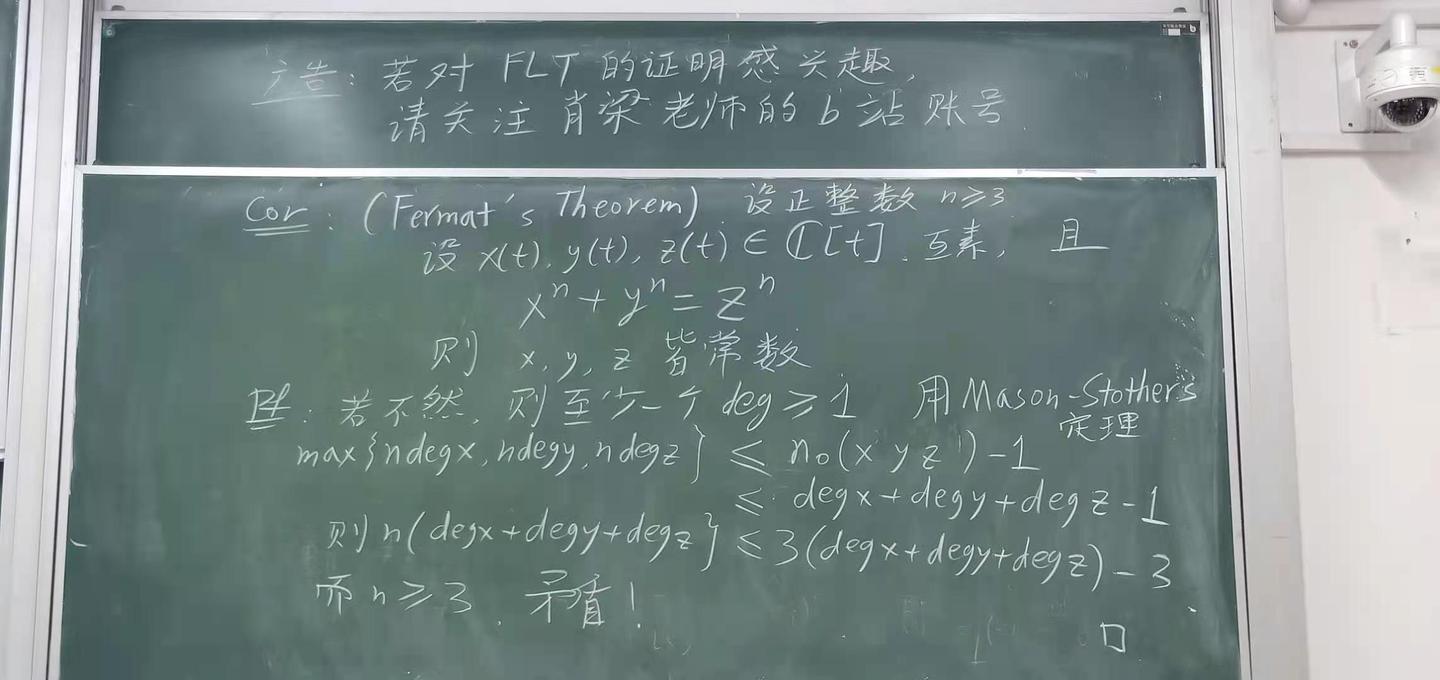 广告：若对 FLT 的证明感兴趣，
请关注肖梁老师的b站账号.
Cor：(Fermat's Theorem) 设正整数 n≥3
设 x(t), y(t), z(t) ∈ ℂ[t]、互素，且
xⁿ + yⁿ = zⁿ
则 x, y, z 皆常数
Pf：若不然，则至少一个 deg≥1 用Mason-Stother's
定理
max{ndegx, ndegy, ndegz} ≤ n₀(xyz)-1
≤ degx+degy+degz-1
则 n(degx+degy+degz} ≤ 3(degx+degy+degz)-3
而 n≥3，矛盾！
□